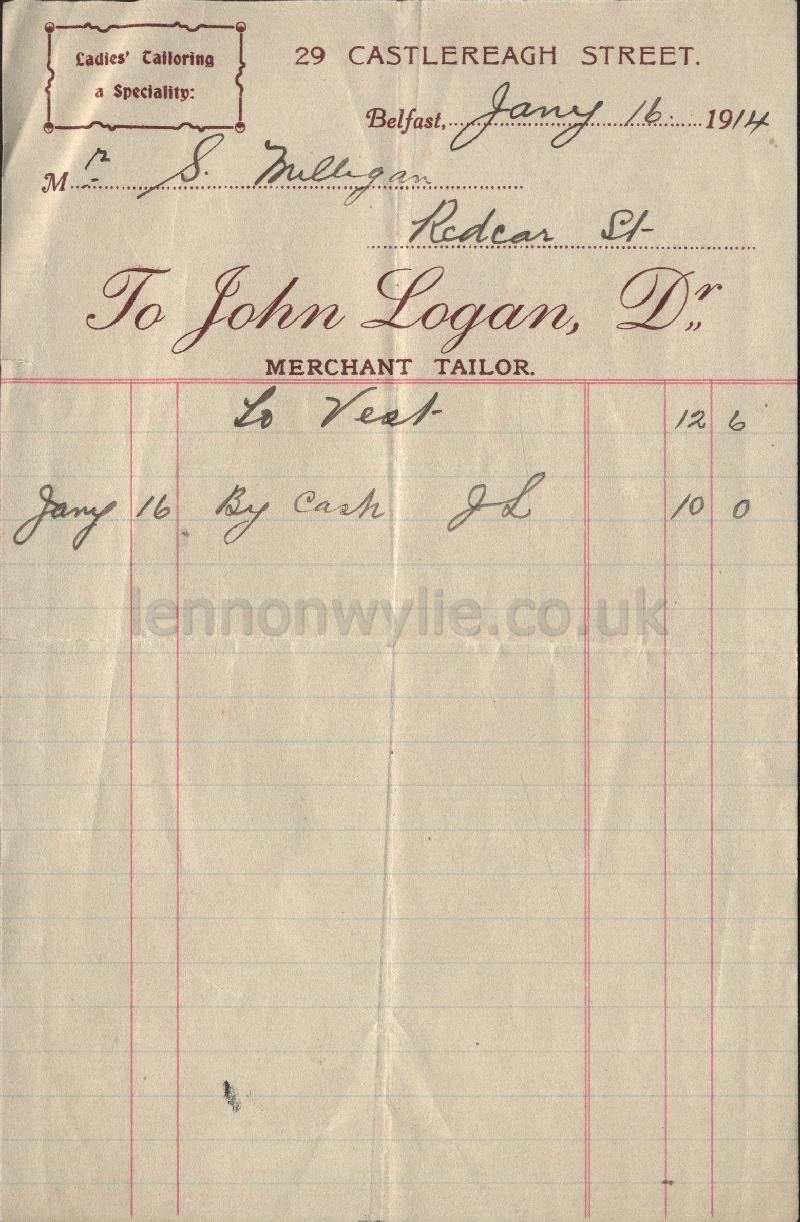 Ladies' Tailoring
a Speciality:
29 CASTLEREAGH STREET.
Belfast, Jany 16 1914
Mr S. Milligan
Redcar St
To John Logan, Dr
MERCHANT TAILOR.
To Vest 12 6
Jany 16 By Cash JL 10 0
lennonwylie.co.uk